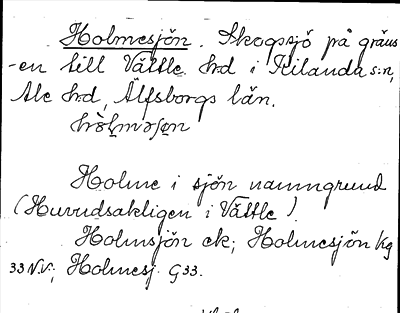 Holmesjön. Skogssjö på gräns
-en till Vättle hrd i Kilanda s:n,
Ale hrd, Älfsborgs län.
Holme i sjön namngrund
(Huvudsakligen i Vättle).
Holmsjön ek; Holmesjön hg
33 N.V.; Holmesj. G33.